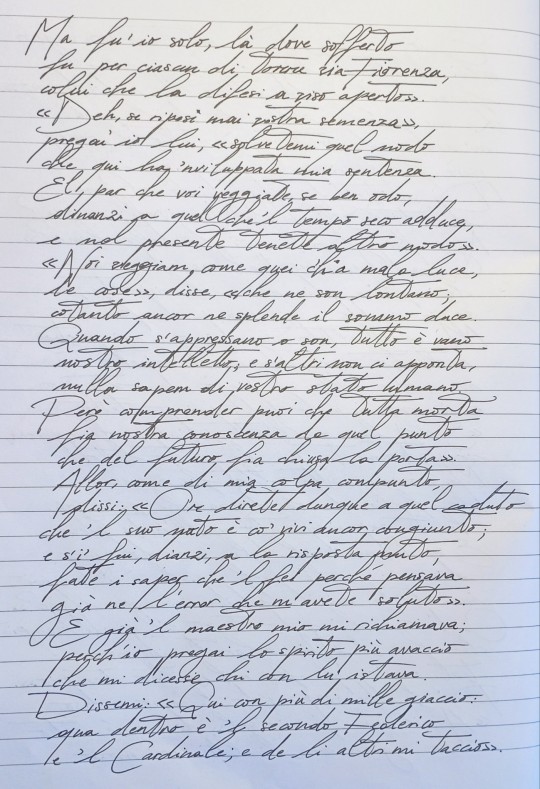 Ma fu' io solo, là dove sofferto
fu per ciascun di torre via Fiorenza,
colui che la difesi a viso aperto».
«Deh, se riposi mai vostra semenza»,
prega' io lui, «solvetemi quel nodo
che qui ha 'nviluppata mia sentenza.
El par che voi veggiate, se ben odo,
dinanzi a quel che 'l tempo seco adduce,
e nel presente tenete altro modo».
«Noi veggiam, come quei c'ha mala luce,
le cose», disse, «che ne son lontano;
cotanto ancor ne splende il sommo duce.
Quando s'appressano o son, tutto è vano
nostro intelletto; e s'altri non ci apporta,
nulla sapem di vostro stato umano.
Però comprender puoi che tutta morta
fia nostra conoscenza da quel punto
che del futuro fia chiusa la porta».
Allor, come di mia colpa compunto,
dissi: «Or direte dunque a quel caduto
che 'l suo nato è co' vivi ancor congiunto;
e s'i' fui, dianzi, a la risposta muto,
fate i saper che 'l fei perché pensava
già ne l'error che m'avete soluto».
E già 'l maestro mio mi richiamava;
perch'io pregai lo spirito più avaccio
che mi dicesse chi con lu' istava.
Dissemi: «Qui con più di mille giaccio:
qua dentro è 'l secondo Federico
e 'l Cardinale; e de li altri mi taccio».